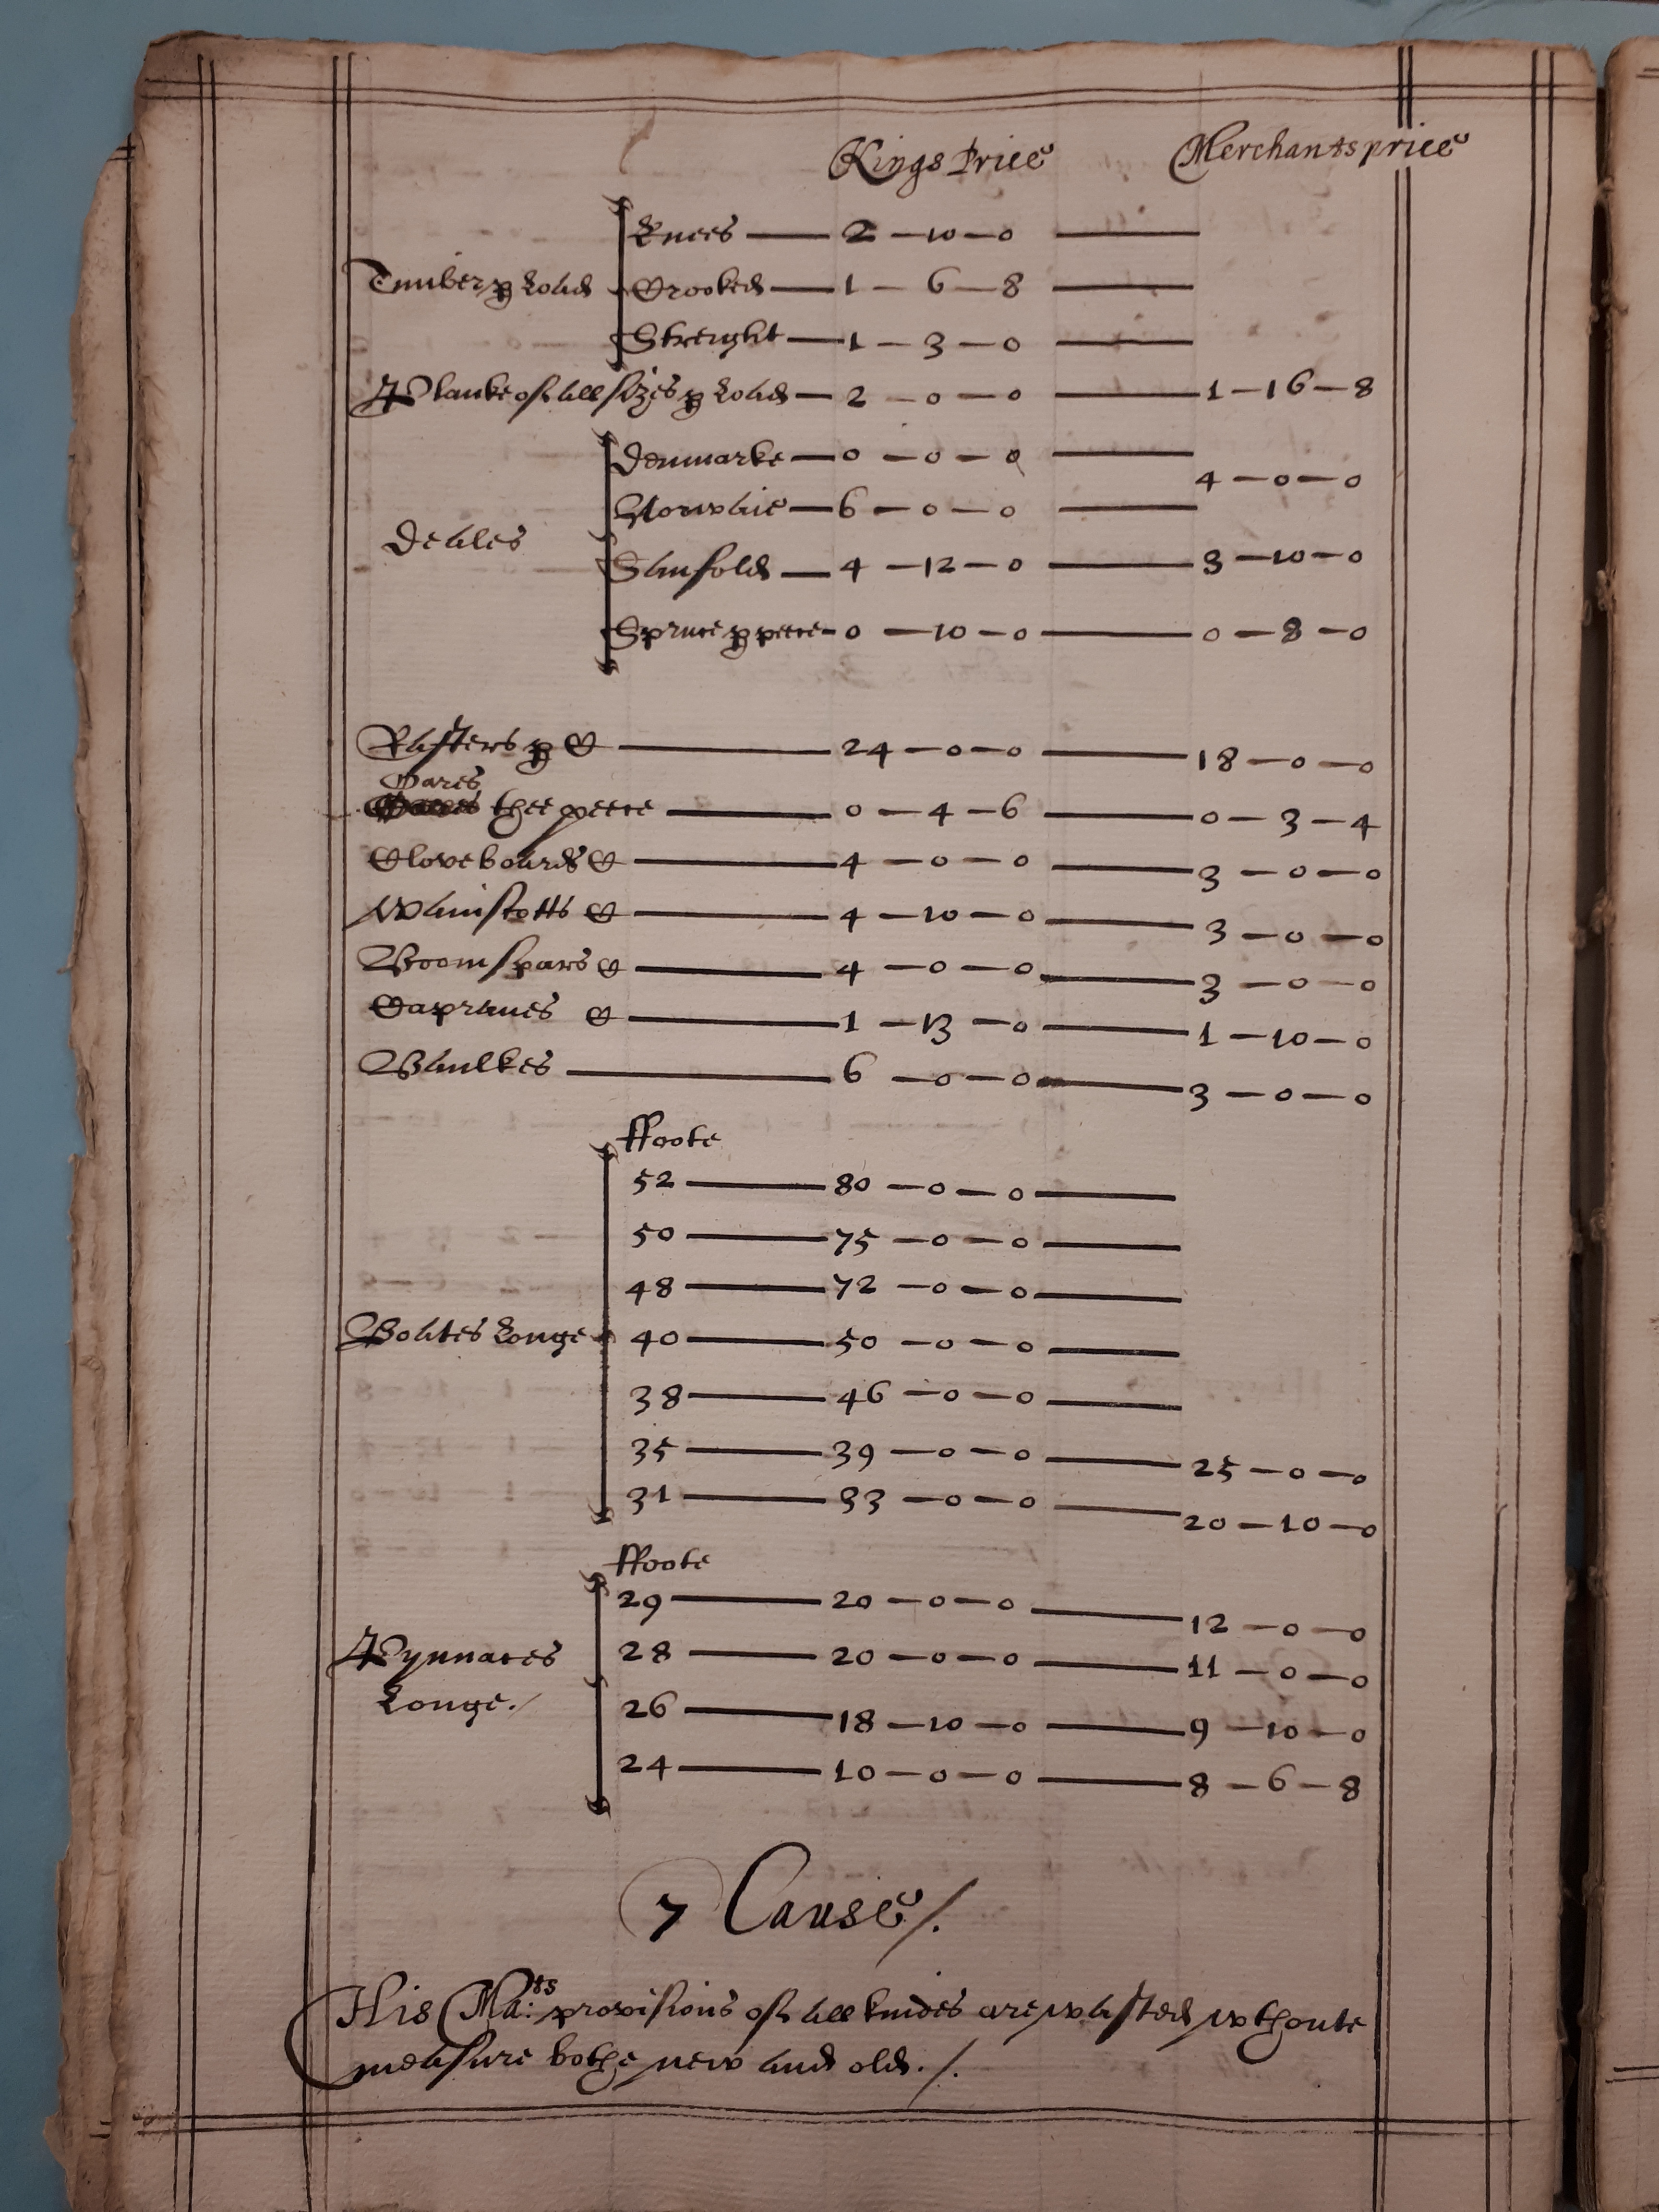 Kings Price Merchants price
Knees 2 – 10 – 0
Timber p Load Crooked 1 – 6 – 8
Streight 1 – 3 – 0
Planke of all sizes p Load 2 – 0 – 0 1 – 16 – 8
Denmarke 0 – 0 – 0
4 – 0 – 0
Norwaie 6 – 0 – 0
Deales
Slinfold 4 – 12 – 0 3 – 10 – 0
Spruce p peece 0 – 10 – 0 0 – 8 – 0
Rafters p C 24 – 0 – 0 18 – 0 – 0
Oares
thee peece 0 – 4 – 6 0 – 3 – 4
Clove boards C 4 – 0 – 0 3 – 0 – 0
Wainscotts C 4 – 10 – 0 3 – 0 – 0
Boomspars C 4 – 0 – 0 3 – 0 – 0
Capraues C 1 – 13 – 0 1 – 10 – 0
Baulkes 6 – 0 – 0 3 – 0 – 0
ffoote
52 80 – 0 – 0
50 75 – 0 – 0
48 72 – 0 – 0
Boates Longe 40 50 – 0 – 0
38 46 – 0 – 0
35 39 – 0 – 0 25 – 0 – 0
31 33 – 0 – 0 20 – 10 – 0
ffoote
29 20 – 0 – 0 12 – 0 – 0
Pynnaces 28 20 – 0 – 0 11 – 0 – 0
Longe./ 26 18 – 10 – 0 9 – 10 – 0
24 10 – 0 – 0 8 – 6 – 8
7 Cause /.
His Ma:ts provisions of all kindes are wasted wthoute
measure bothe new and old ./.